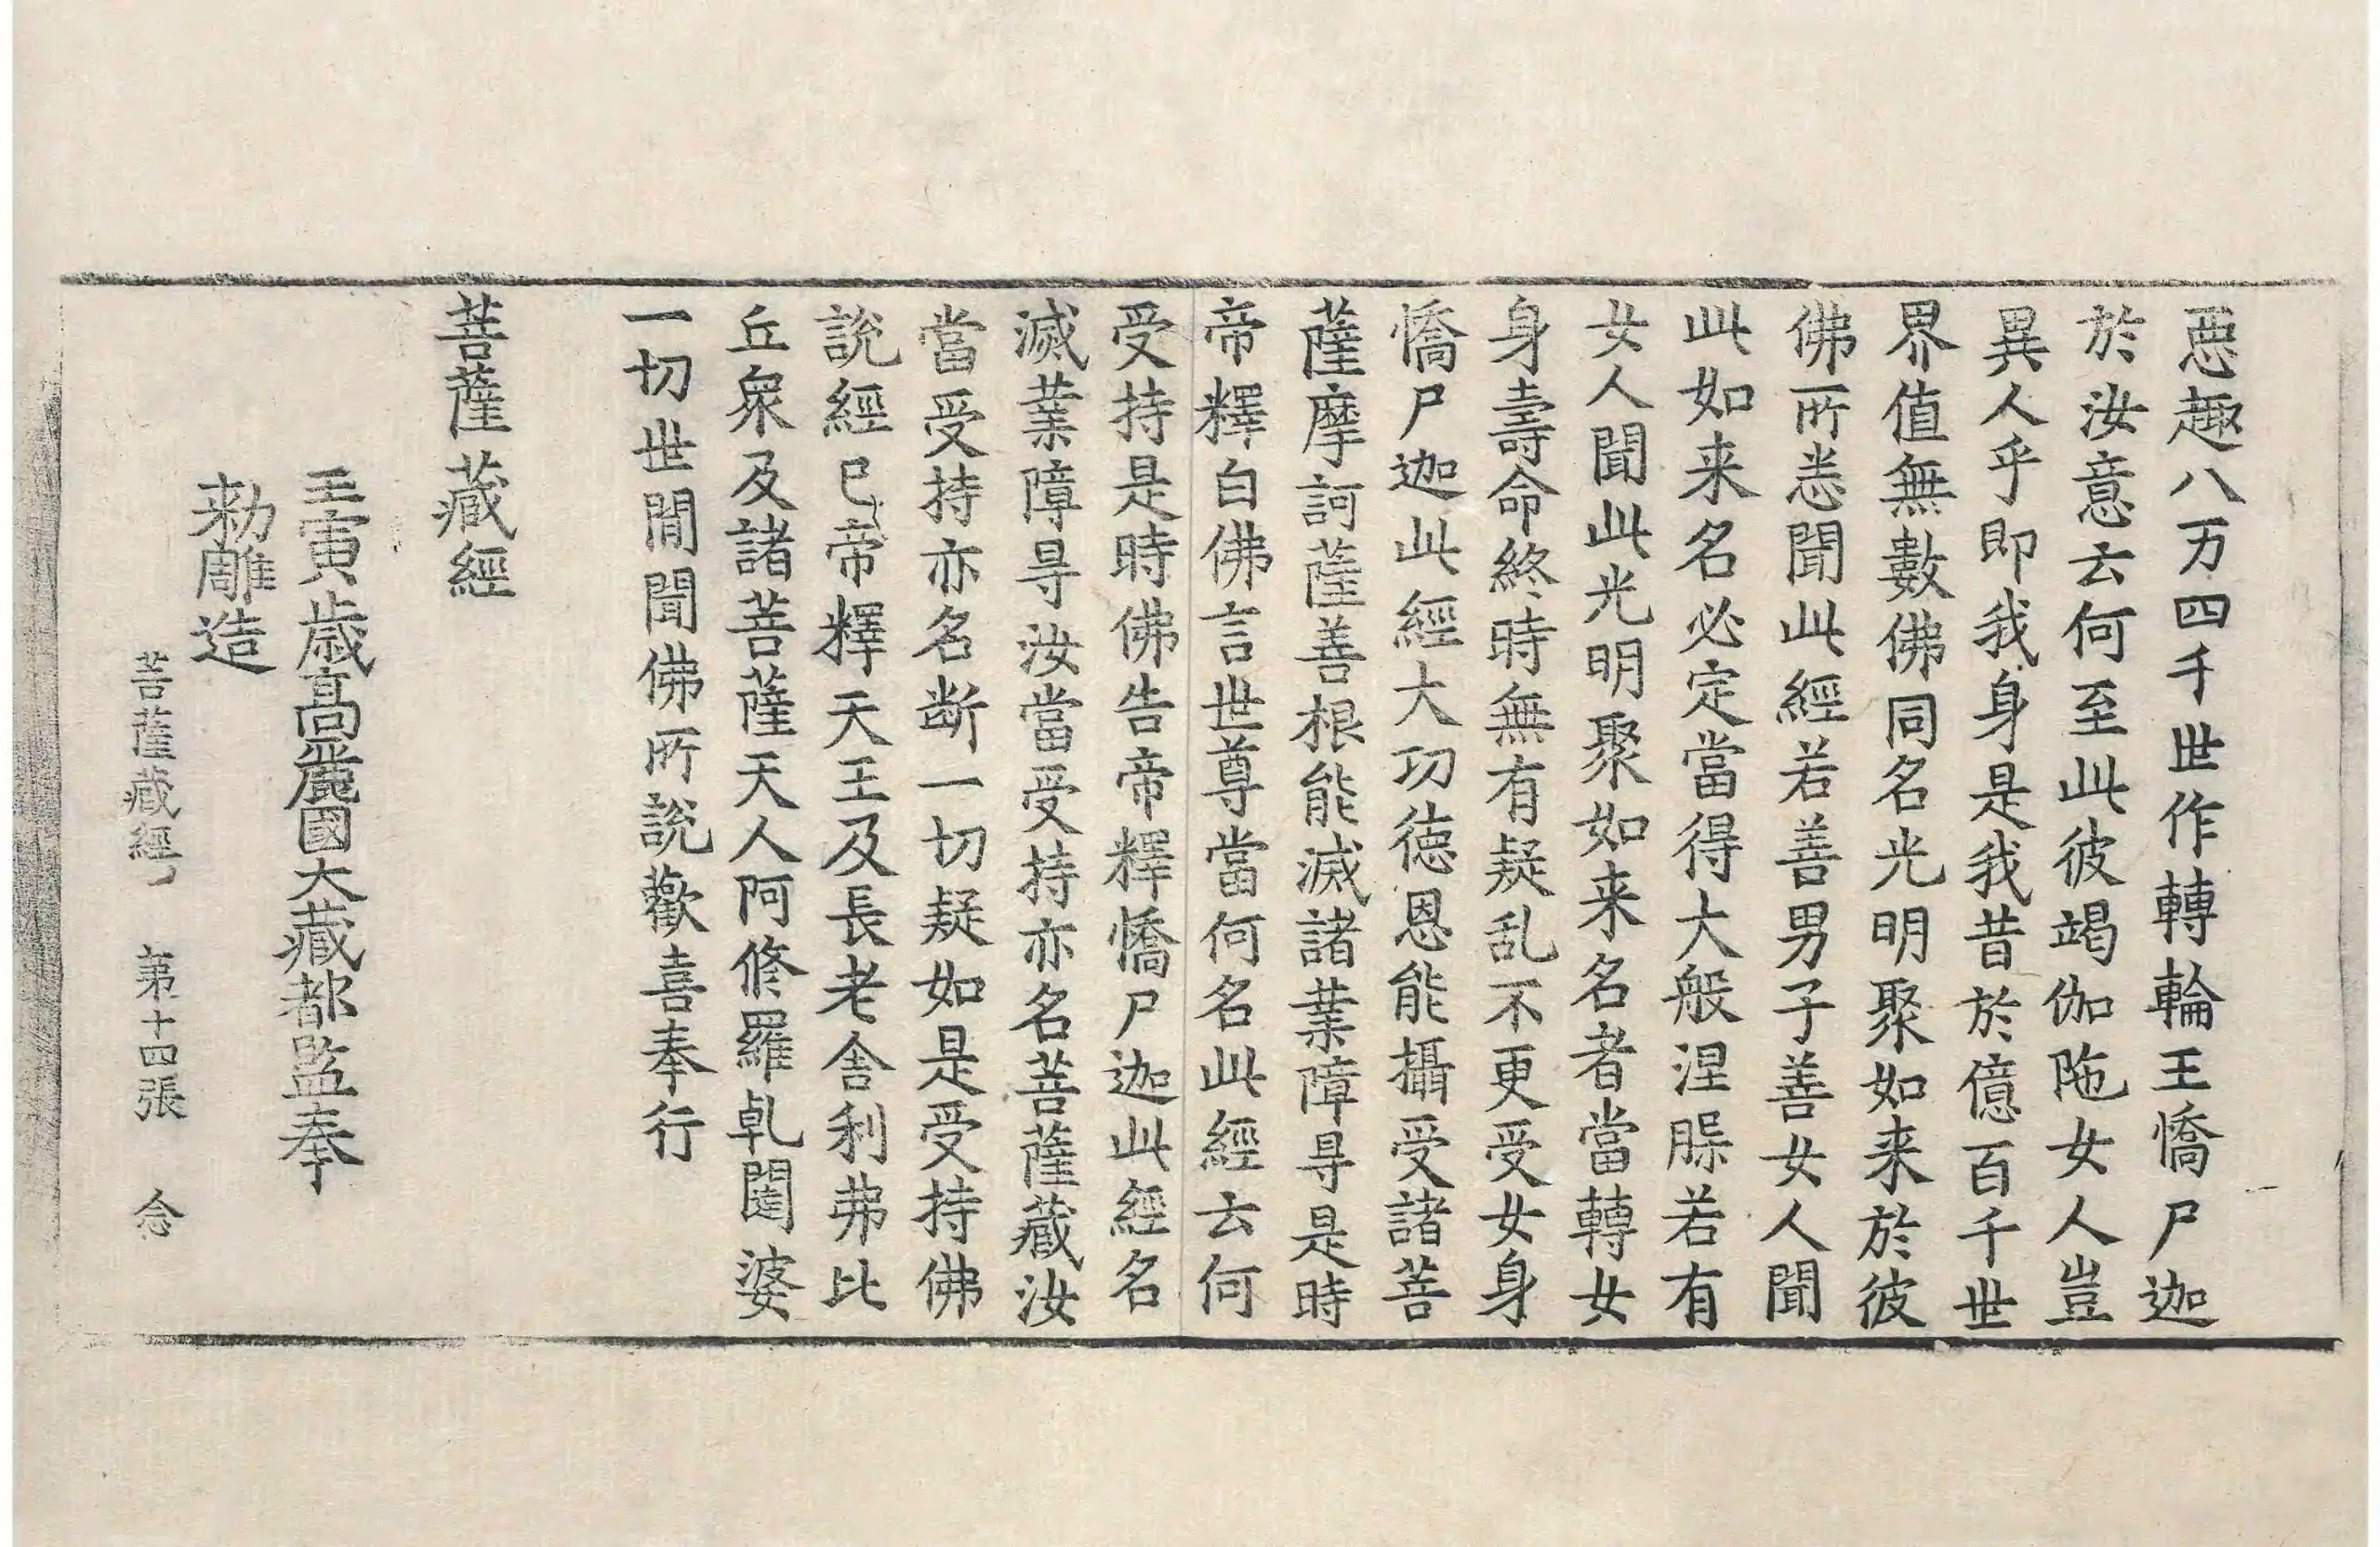 惡趣八万四千世作轉輪王憍尸迦
於汝意云何至此彼竭伽陁女人豈
異人乎即我身是我昔於億百千世
界值無數佛同名光明聚如来於彼
佛所悉聞此經若善男子善女人聞
此如来名必定當得大般涅䏶若有
女人聞此光明聚如来名者當轉女
身壽命終時無有疑乱不更受女身
憍尸迦此經大功徳恩能攝受諸菩
薩摩訶薩善根能滅諸業障㝵是時
帝釋白佛言世尊當何名此經云何
受持是時佛告帝釋憍尸迦此經名
滅業障㝵汝當受持亦名菩薩藏汝
當受持亦名断一切疑如是受持佛
說經已帝釋天王及長老舍利弗比
丘衆及諸菩薩天人阿修羅乹闥婆
一切世閒聞佛所說歡喜奉行
菩薩藏經
壬寅歳高麗國大藏都監奉
勑雕造
菩薩藏經 第十四張 念